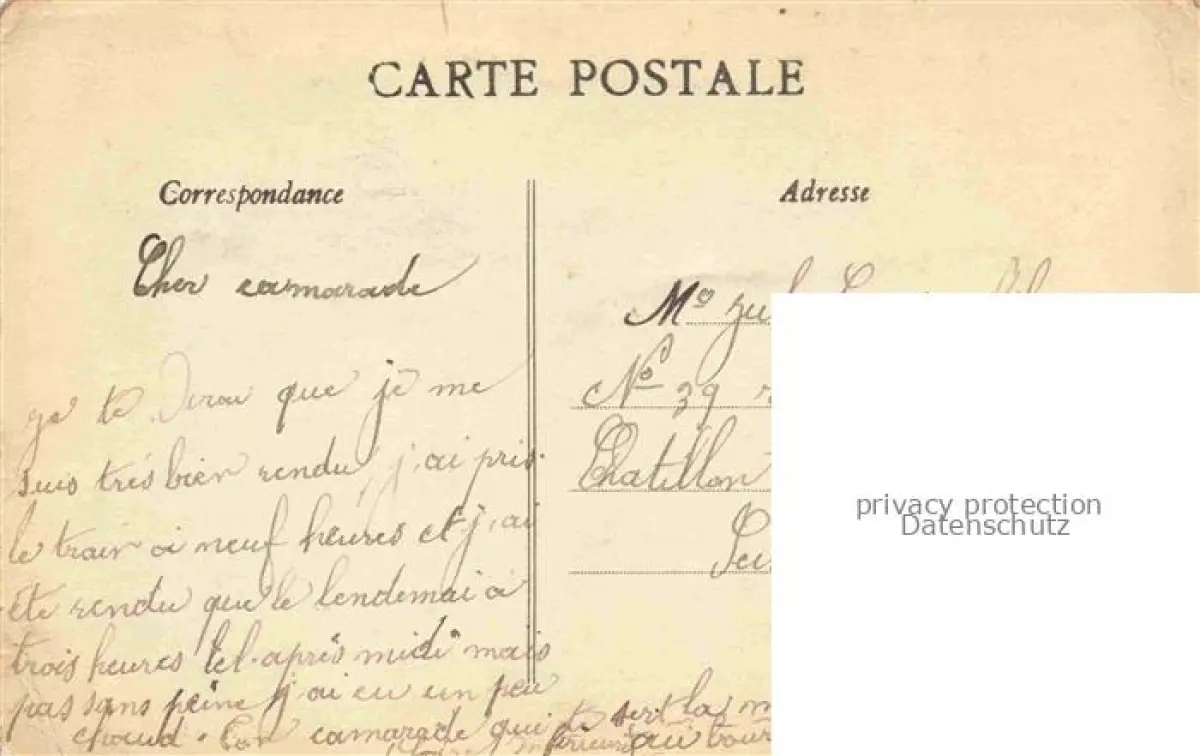 CARTE POSTALE
Correspondance
Adresse
Cher camarade
je te dirai que je me
suis trés bien rendu j,ai pris
le train a neuf heures et j,ai
ete rendu que le lendemai a
trois heures tel-après midi mais
pas sans peine j'ai eu un peu
chaud. Ton camarade qui te sert la
Mr
No 39
Chatillon
privacy protection
Datenschutz